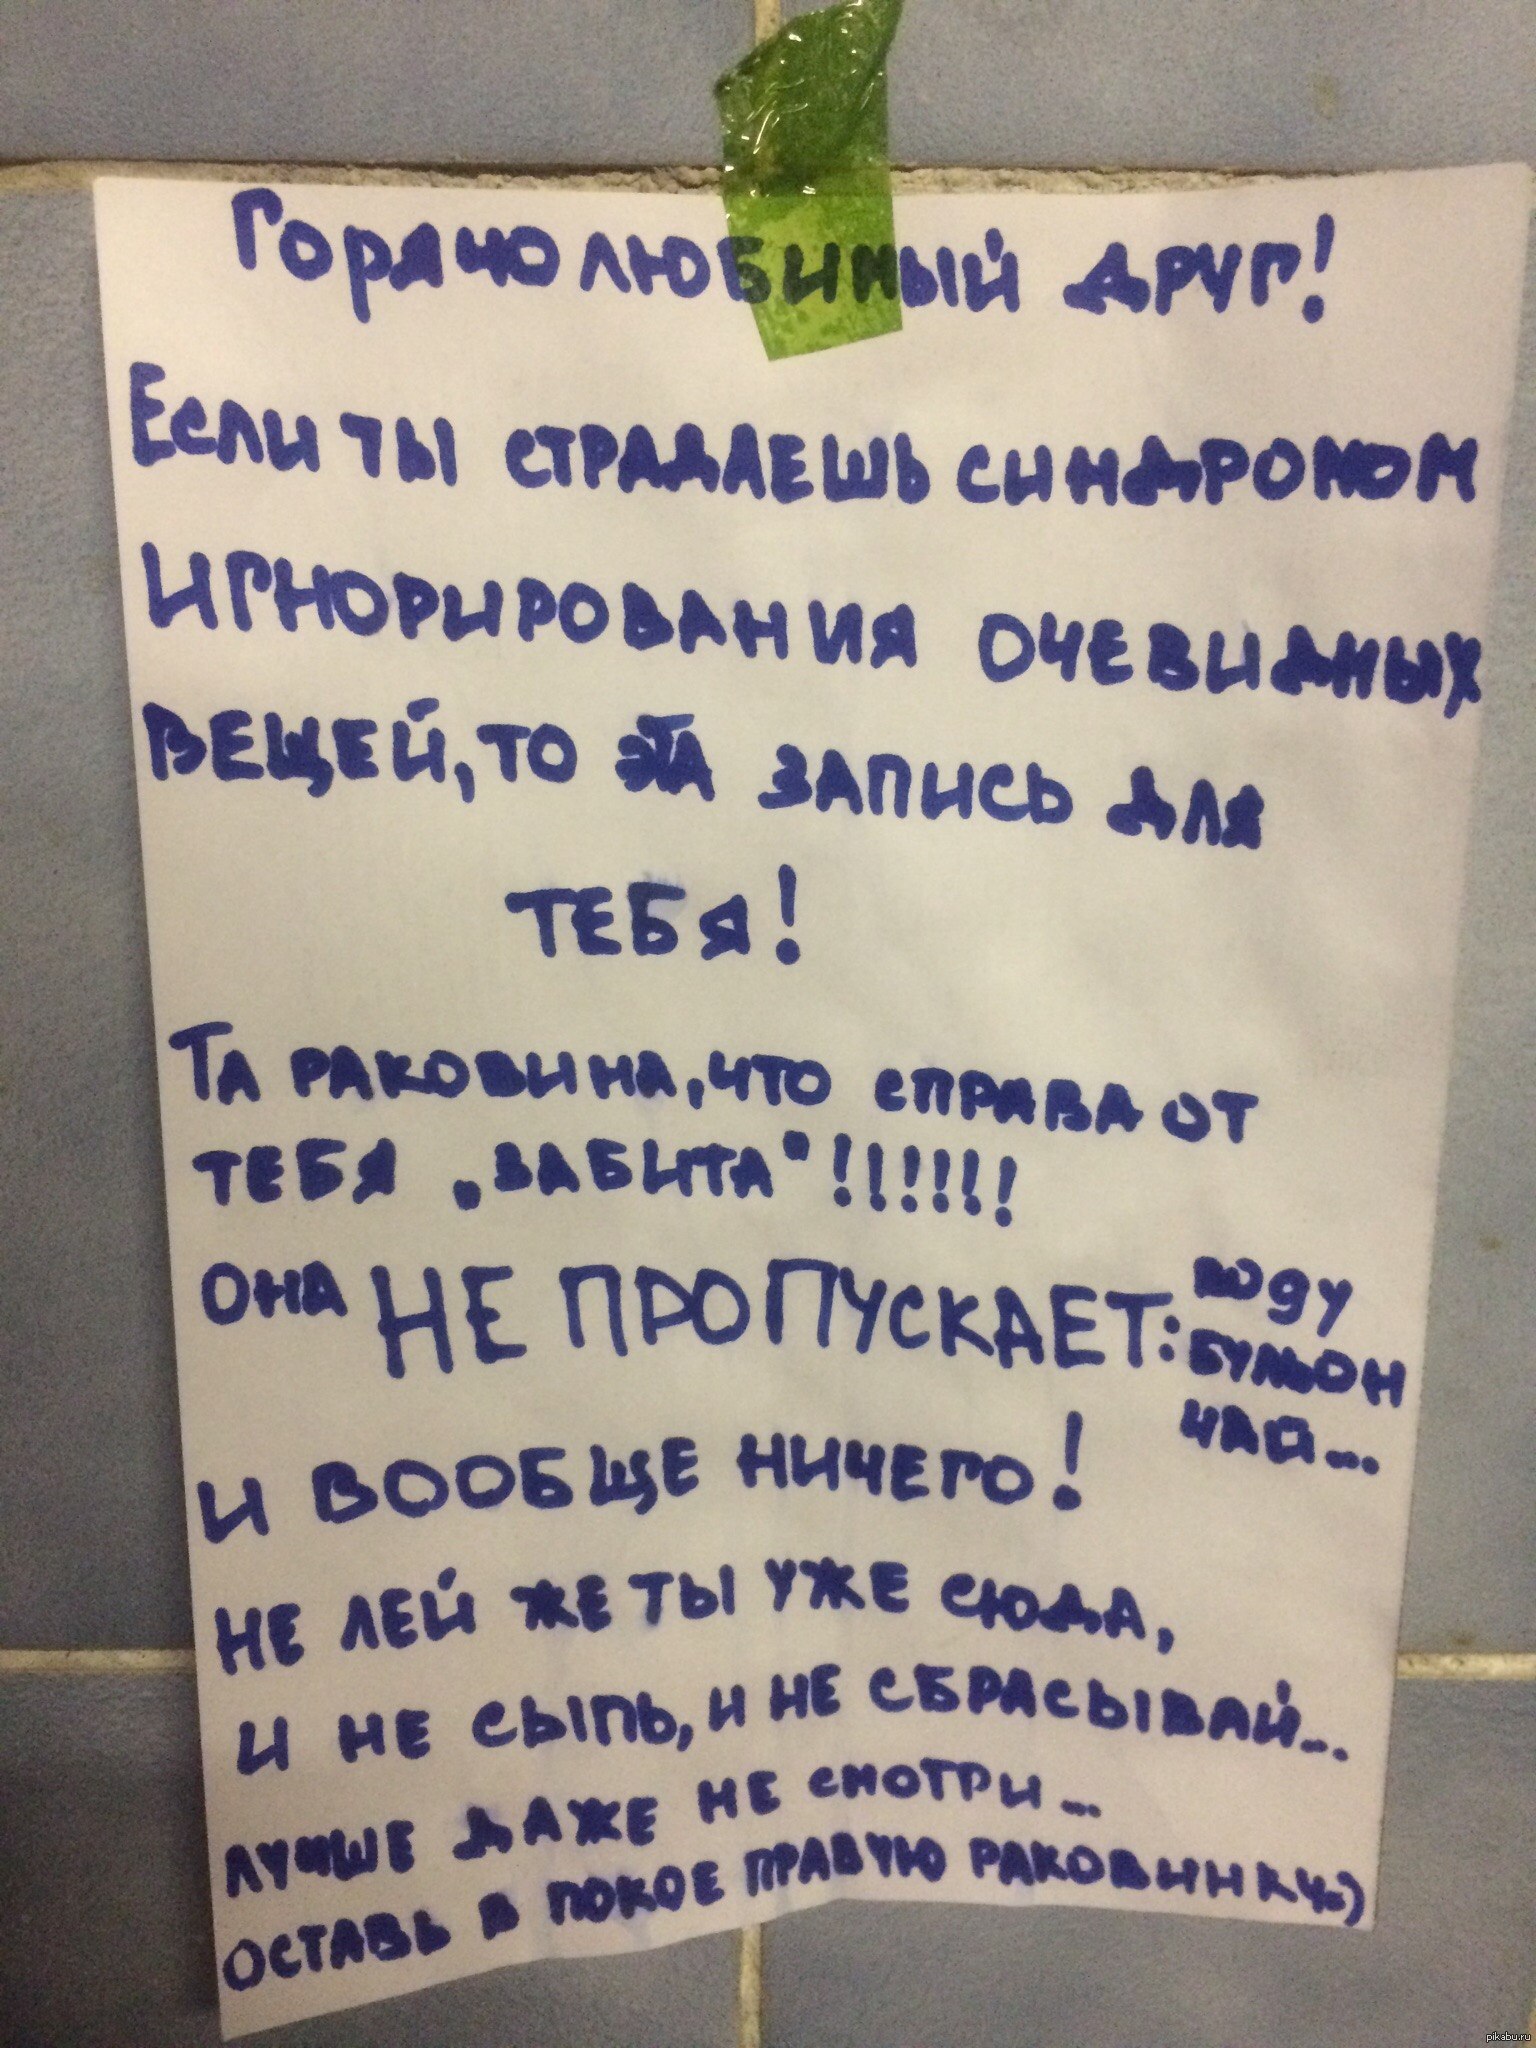 Горячо любимый друг!
Если ты страдаешь синдромом
игнорирования очевидных
вещей, то эта запись для
тебя!
Та раковина, что справа от
тебя "забита"!!!!!!
Она НЕ ПРОПУСКАЕТ: воду
бульон
чай...
и вообще ничего!
не лей же ты уже сюда,
и не сыпь, и не сбрасывай...
лучше даже не смотри...
оставь в покое правую раковинку=)
pikabu.ru